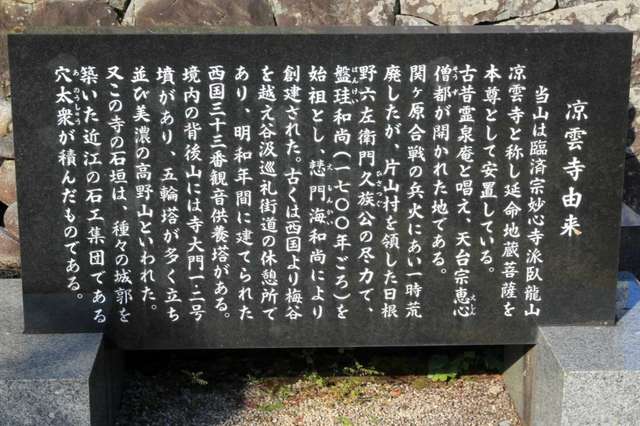 凉雲寺由来
当山は臨済宗妙心寺派臥龍山
凉雲寺と称し延命地蔵菩薩を
本尊として安置している。
古昔霊泉庵と唱え、天台宗恵心
僧都が開かれた地である。
関ヶ原合戦の兵火にあい一時荒
廃したが、片山村を領した日根
野六左衛門久族公の尽力で、
盤珪和尚(一七〇〇年ごろ)を
始祖とし、門海和尚により
創建された。古くは西国より梅谷
を越え谷汲巡礼街道の休憩所で
あり、明和年間に建てられた
西国三十三番観音供養塔がある。
境内の背後山には寺大門一・二号
墳があり、五輪塔が多く立ち
並び美濃の高野山といわれた。
又この寺の石垣は、種々の城郭を
築いた近江の石工集団である
穴太衆が積んだものである。